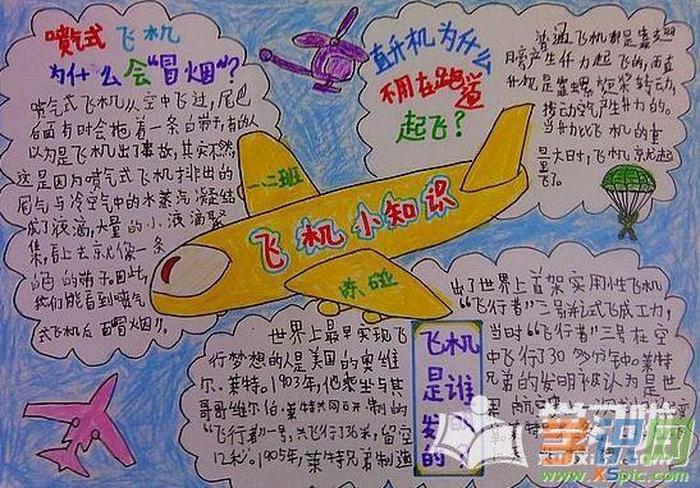 喷气式飞机
为什么会“冒烟”?
喷气式飞机从空中飞过,尾巴
后面有时会拖着一条白带子,有的人
以为是飞机出了事故,其实不然,
这是因为喷气式飞机排出的
尾气与冷空气中的水蒸汽凝结
成了液滴,大量的小液滴聚
集,看上去就像一条
白色的带子。因此,
我们能看到喷气
式飞机后面“冒烟”。
直升机为什么
不用在跑道
起飞?
普通飞机都是靠翅
膀产生升力起飞的,而直
升机是靠螺旋桨转动,
拨动空气产生升力的。
当升力比飞机的重
量大时,飞机就起
飞了。
一二班
飞机小知识
陈碰
飞机
是谁
发明
的?
世界上最早实现飞
行梦想的人是美国的奥维
尔.莱特。1903年,他乘坐与其
哥哥维尔伯.莱特共同研制的
“飞行者”一号,共飞行了36米,留空
12秒。1905年,莱特兄弟制造
出了世界上首架实用性飞机
“飞行者”三号并试飞成功,
当时“飞行者”三号在空
中飞行了30多分钟。莱特
兄弟的发明被认为是世
界航空
学识网
www.XSpic.com